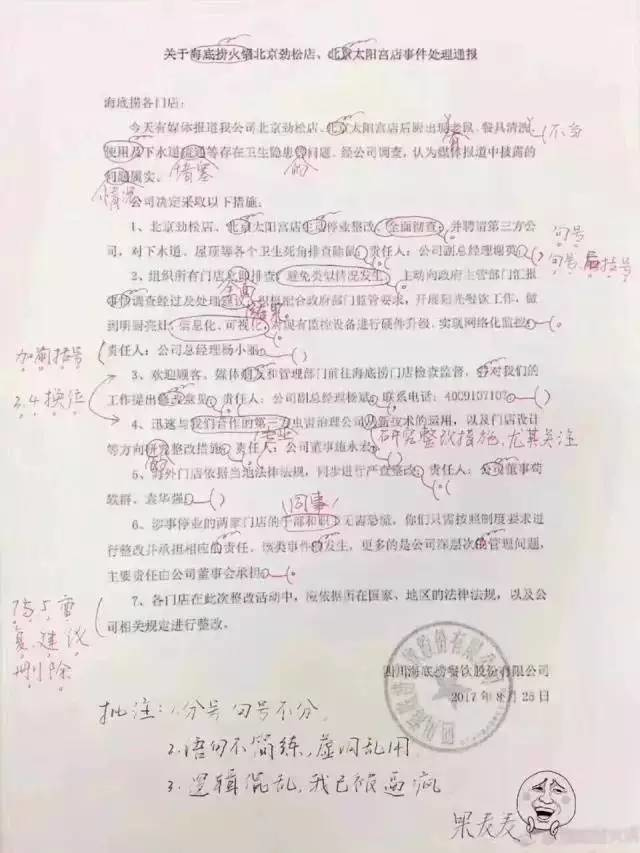 关于海底捞火锅北京劲松店、北京太阳宫店事件处理通报
海底捞各门店：
今天有媒体报道我公司北京劲松店、北京太阳宫店后厨出现老鼠、餐具清洗、
不当
使用及下水道疏通等存在卫生隐患等问题。经公司调查，认为媒体报道中披露的
问题属实。
情况
公司决定采取以下措施：
1、北京劲松店、北京太阳宫店主动停业整改、全面彻查；并聘请第三方公
句号
司，对下水道、屋顶等各个卫生死角排查除鼠；责任人：公司副总经理谢英；
句号，后括号
2、组织所有门店立即排查，避免类似情况发生；主动向政府主管部门汇报
全面
事情调查经过及处理建议；积极配合政府部门监管要求，开展阳光餐饮工作，做
结果
到明厨亮灶，信息化、可视化，对现有监控设备进行硬件升级，实现网络化监控；
加前括号
责任人：公司总经理杨小丽；
3.4换位
3、欢迎顾客、媒体朋友和管理部门前往海底捞门店检查监督，并对我们的
工作提出修改意见；责任人：公司副总经理杨斌；联系电话：4009107107；
4、迅速与我们合作的第三方虫害治理公司从新技术的运用，以及门店设计
专业
研究整改措施，尤其关注
等方向研究整改措施；责任人：公司董事施永宏；
5、海外门店依据当地法律法规，同步进行严查整改；责任人：公司董事苟
轶群、袁华强；
同事
6、涉事停业的两家门店的干部和职工无需恐慌，你们只需按照制度要求进
行整改并承担相应的责任。该类事件的发生，更多的是公司深层次的管理问题，
主要责任由公司董事会承担；
7、各门店在此次整改活动中，应依据所在国家、地区的法律法规，以及公
司相关规定进行整改。
7与5重
复，建议
删除
四川海底捞餐饮股份有限公司
2017年8月25日
批注：1.分号句号不分
2.语句不简练，虚词乱用
3.逻辑混乱，我已被逼疯